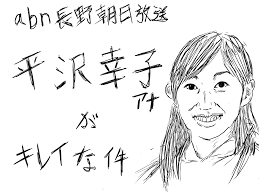 abn長野朝日放送
平沢幸子アナ
が
キレイな件